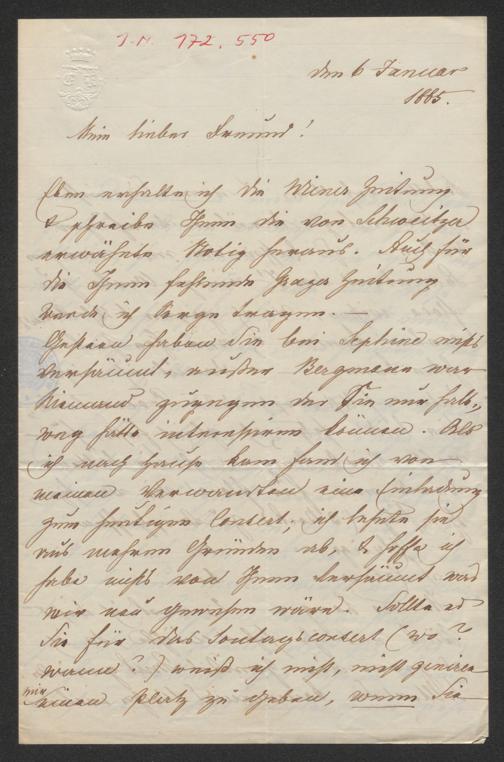 J.N. 172.550
den 6 Januar
1885.
Mein lieber Freund!
Eben erhalte ich die Wiener Zeitung
& schreibe Ihnen die von Schweitzer
erwähnte Notiz heraus. Auch für
die Ihnen fehlende Grazer Zeitung
werde ich Sorge tragen. —
Gestern haben Sie bei Sephine nichts
versäumt, außer Bergmann war
Niemand zugegen der Sie nur halb-
weg hätte interessiren können. Als
ich nach Hause kam fand ich von
meinen Verwandten eine Einladung
zum heutigen Concert; ich lehnte sie
aus mehren Gründen ab, & hoffe ich
habe nichts von Ihnen versäumt was
mir neu gewesen wäre. Sollte es
Sie für das Sontagsconcert (wo?
wann?) weiß ich nicht, nicht geniren
mir einen Platz zu geben, wenn Sie